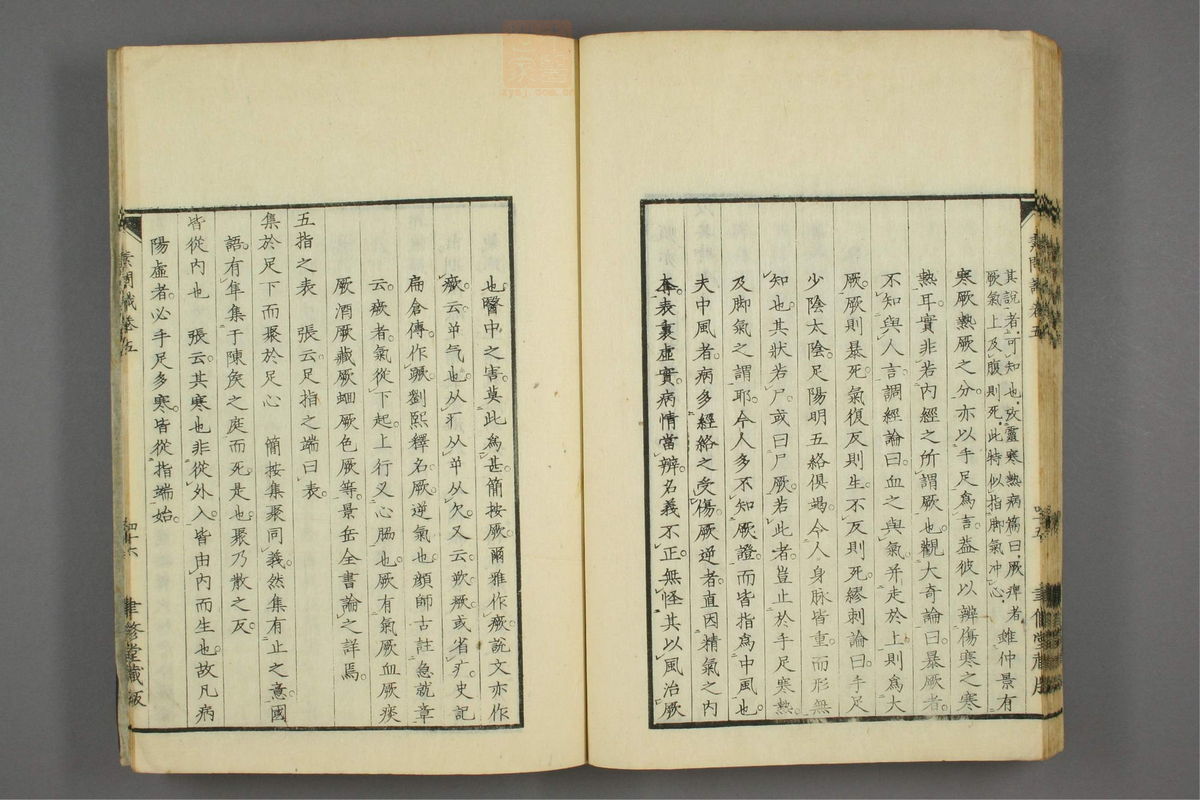 其說者可知也攷靈寒熱病篇曰厥痺者
厥氣上及腹則死此時似指脚氣冲心
雖仲景有
寒厥熱厥之分亦以手足爲言葢彼以辨傷寒之寒
熱耳實非若內經之所謂厥也觀大奇論曰暴厥者
不知與人言調經論曰血之與氣并走於上則爲大
厥厥則暴死氣復反則生不反則死繆刺論曰手足
少陰太陰足陽明五絡俱竭令人身脉皆重而形無
知也其狀若尸或曰尸厥若此者豈止於手足寒熱
及脚氣之謂耶今人多不知厥證而皆指爲中風也
夫中風者病多經絡之受傷厥逆者直因精氣之內
奪表裏虛實病情當辨名義不正無怪其以風治厥
也醫中之害莫此爲甚簡按厥爾雅作瘚說文亦作
瘚云屰气也从疒从屰从欠又云欮瘚或省疒史記
扁倉傳作蹶劉熙釋名厥逆氣也顔師古註急就章
云瘚者氣從下起上行叉心脇也厥有氣厥血厥痰
厥酒厥藏厥蛔厥色厥等景岳全書論之詳焉
五指之表 張云足指之端曰表
集於足下而聚於足心 簡按集聚同義然集有止之意國
語有隼集于陳矦之庭而死是也聚乃散之反
皆從內也 張云其寒也非從外入皆由內而生也故凡病
陽虛者必手足多寒皆從指端始
素問識卷五
四十六
聿修堂藏版